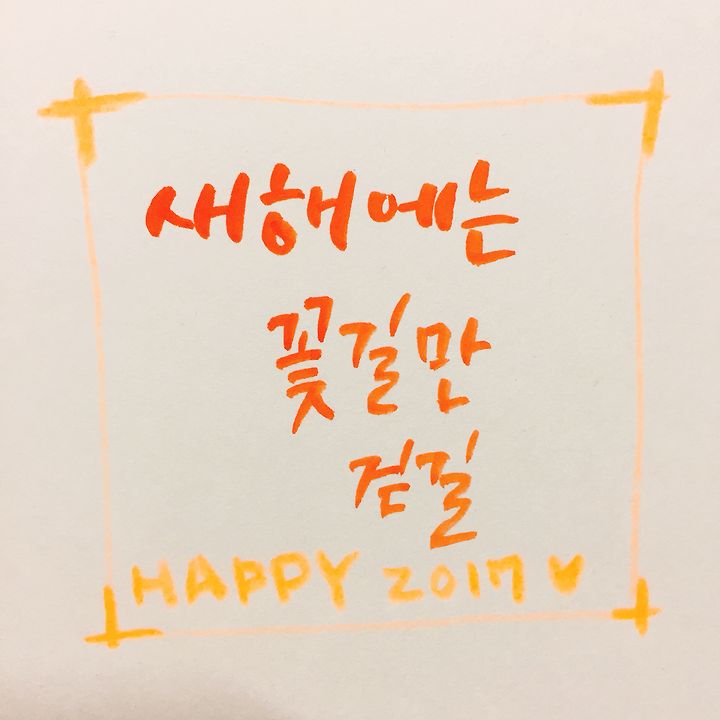 새해에는
꽃길만
걷길
HAPPY 2017